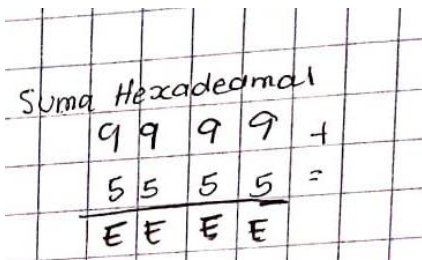 Suma Hexadecimal
9 9 9 9 +
5 5 5 5 =
E E E E